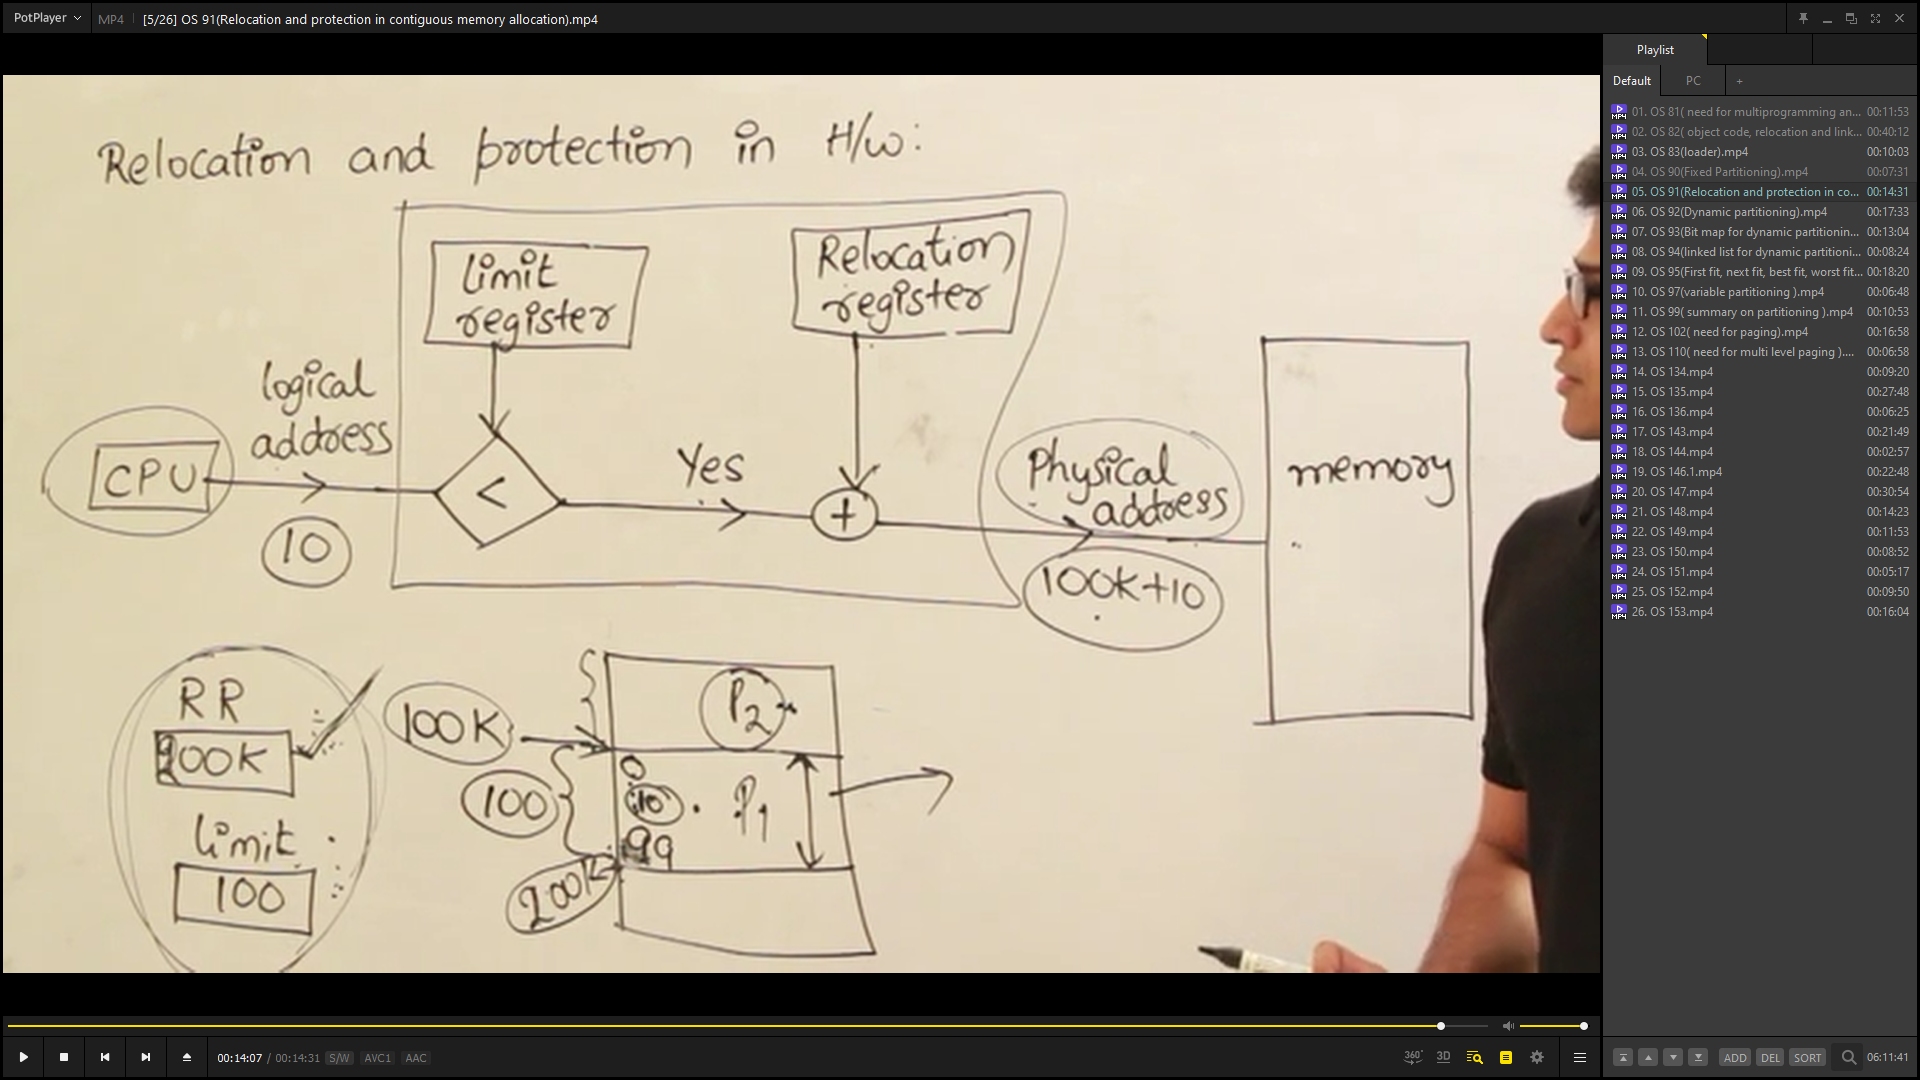 PotPlayer
MP4
[5/26] OS 91(Relocation and protection in contiguous memory allocation).mp4
Relocation and protection in H/w:
Limit
register
Relocation
register
logical
address
CPU
<
Yes
+
Physical
address
memory
10
100K+10
RR
200K
limit
100
100K
100
200K
P2
0
10
P1
99
Playlist
Default
PC
+
01. OS 81( need for multiprogramming an... 00:11:53
02. OS 82( object code, relocation and link... 00:40:12
03. OS 83(loader).mp4 00:10:03
04. OS 90(Fixed Partitioning).mp4 00:07:31
05. OS 91(Relocation and protection in co... 00:14:31
06. OS 92(Dynamic partitioning).mp4 00:17:33
07. OS 93(Bit map for dynamic partitionin... 00:13:04
08. OS 94(linked list for dynamic partitioni... 00:08:24
09. OS 95(First fit, next fit, best fit, worst fit... 00:18:20
10. OS 97(variable partitioning ).mp4 00:06:48
11. OS 99( summary on partitioning ).mp4 00:10:53
12. OS 102( need for paging).mp4 00:16:58
13. OS 110( need for multi level paging ).... 00:06:58
14. OS 134.mp4 00:09:20
15. OS 135.mp4 00:27:48
16. OS 136.mp4 00:06:25
17. OS 143.mp4 00:21:49
18. OS 144.mp4 00:02:57
19. OS 146.1.mp4 00:22:48
20. OS 147.mp4 00:30:54
21. OS 148.mp4 00:14:23
22. OS 149.mp4 00:11:53
23. OS 150.mp4 00:08:52
24. OS 151.mp4 00:05:17
25. OS 152.mp4 00:09:50
26. OS 153.mp4 00:16:04
00:14:07 / 00:14:31 S/W AVC1 AAC
360° 3D
ADD DEL SORT 06:11:41